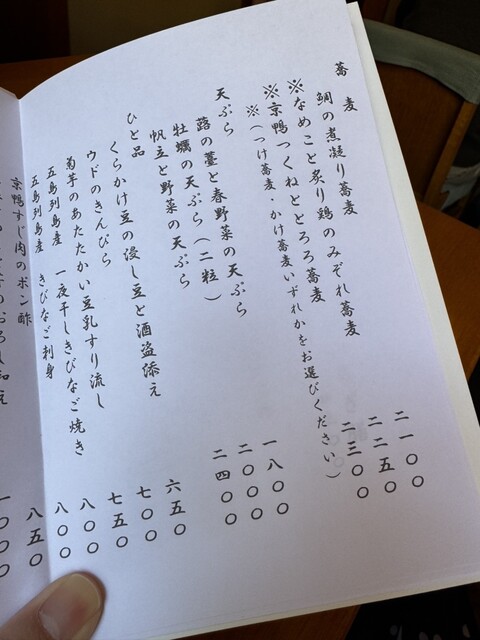 蕎麦
鯛の煮凝り蕎麦 二一〇〇
※なめこと炙り鶏のみぞれ蕎麦 二二五〇
※京鴨つくねととろろ蕎麦 二三〇〇
※（つけ蕎麦・かけ蕎麦いずれかをお選びください）
天ぷら
蕗の薹と春野菜の天ぷら 一八〇〇
牡蠣の天ぷら（二粒） 二〇〇〇
帆立と野菜の天ぷら 二四〇〇
ひと品
くらかけ豆の浸し豆と酒盗添え 六五〇
ウドのきんぴら 七〇〇
菊芋のあたたかい豆乳すり流し 七五〇
五島列島産 一夜干しきびなご焼き 八〇〇
五島列島産 きびなご刺身 八〇〇
京鴨すじ肉のポン酢 八五〇
一〇〇〇